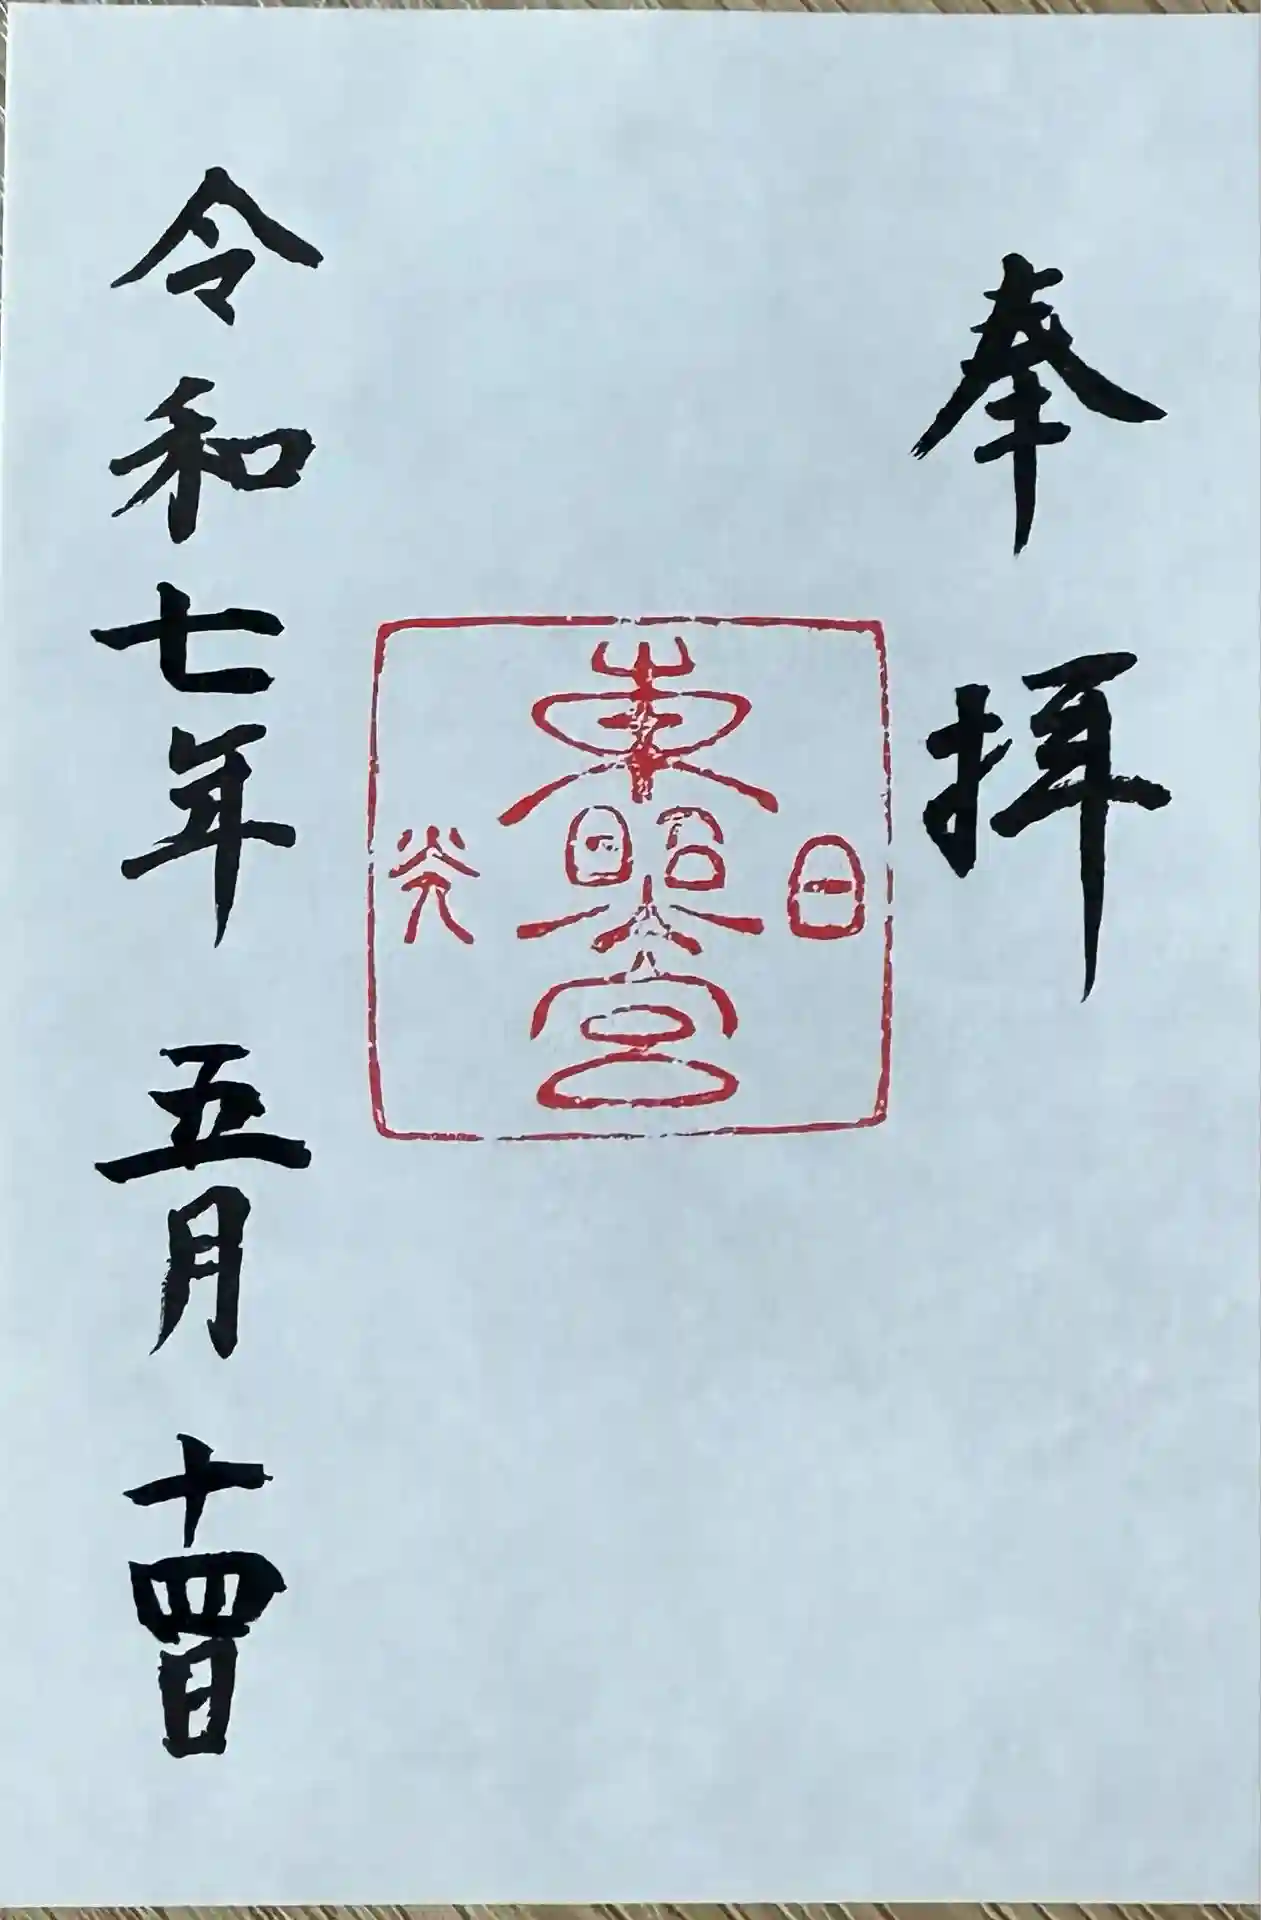 奉拝
日光
東照宮
令和七年 五月 十四日